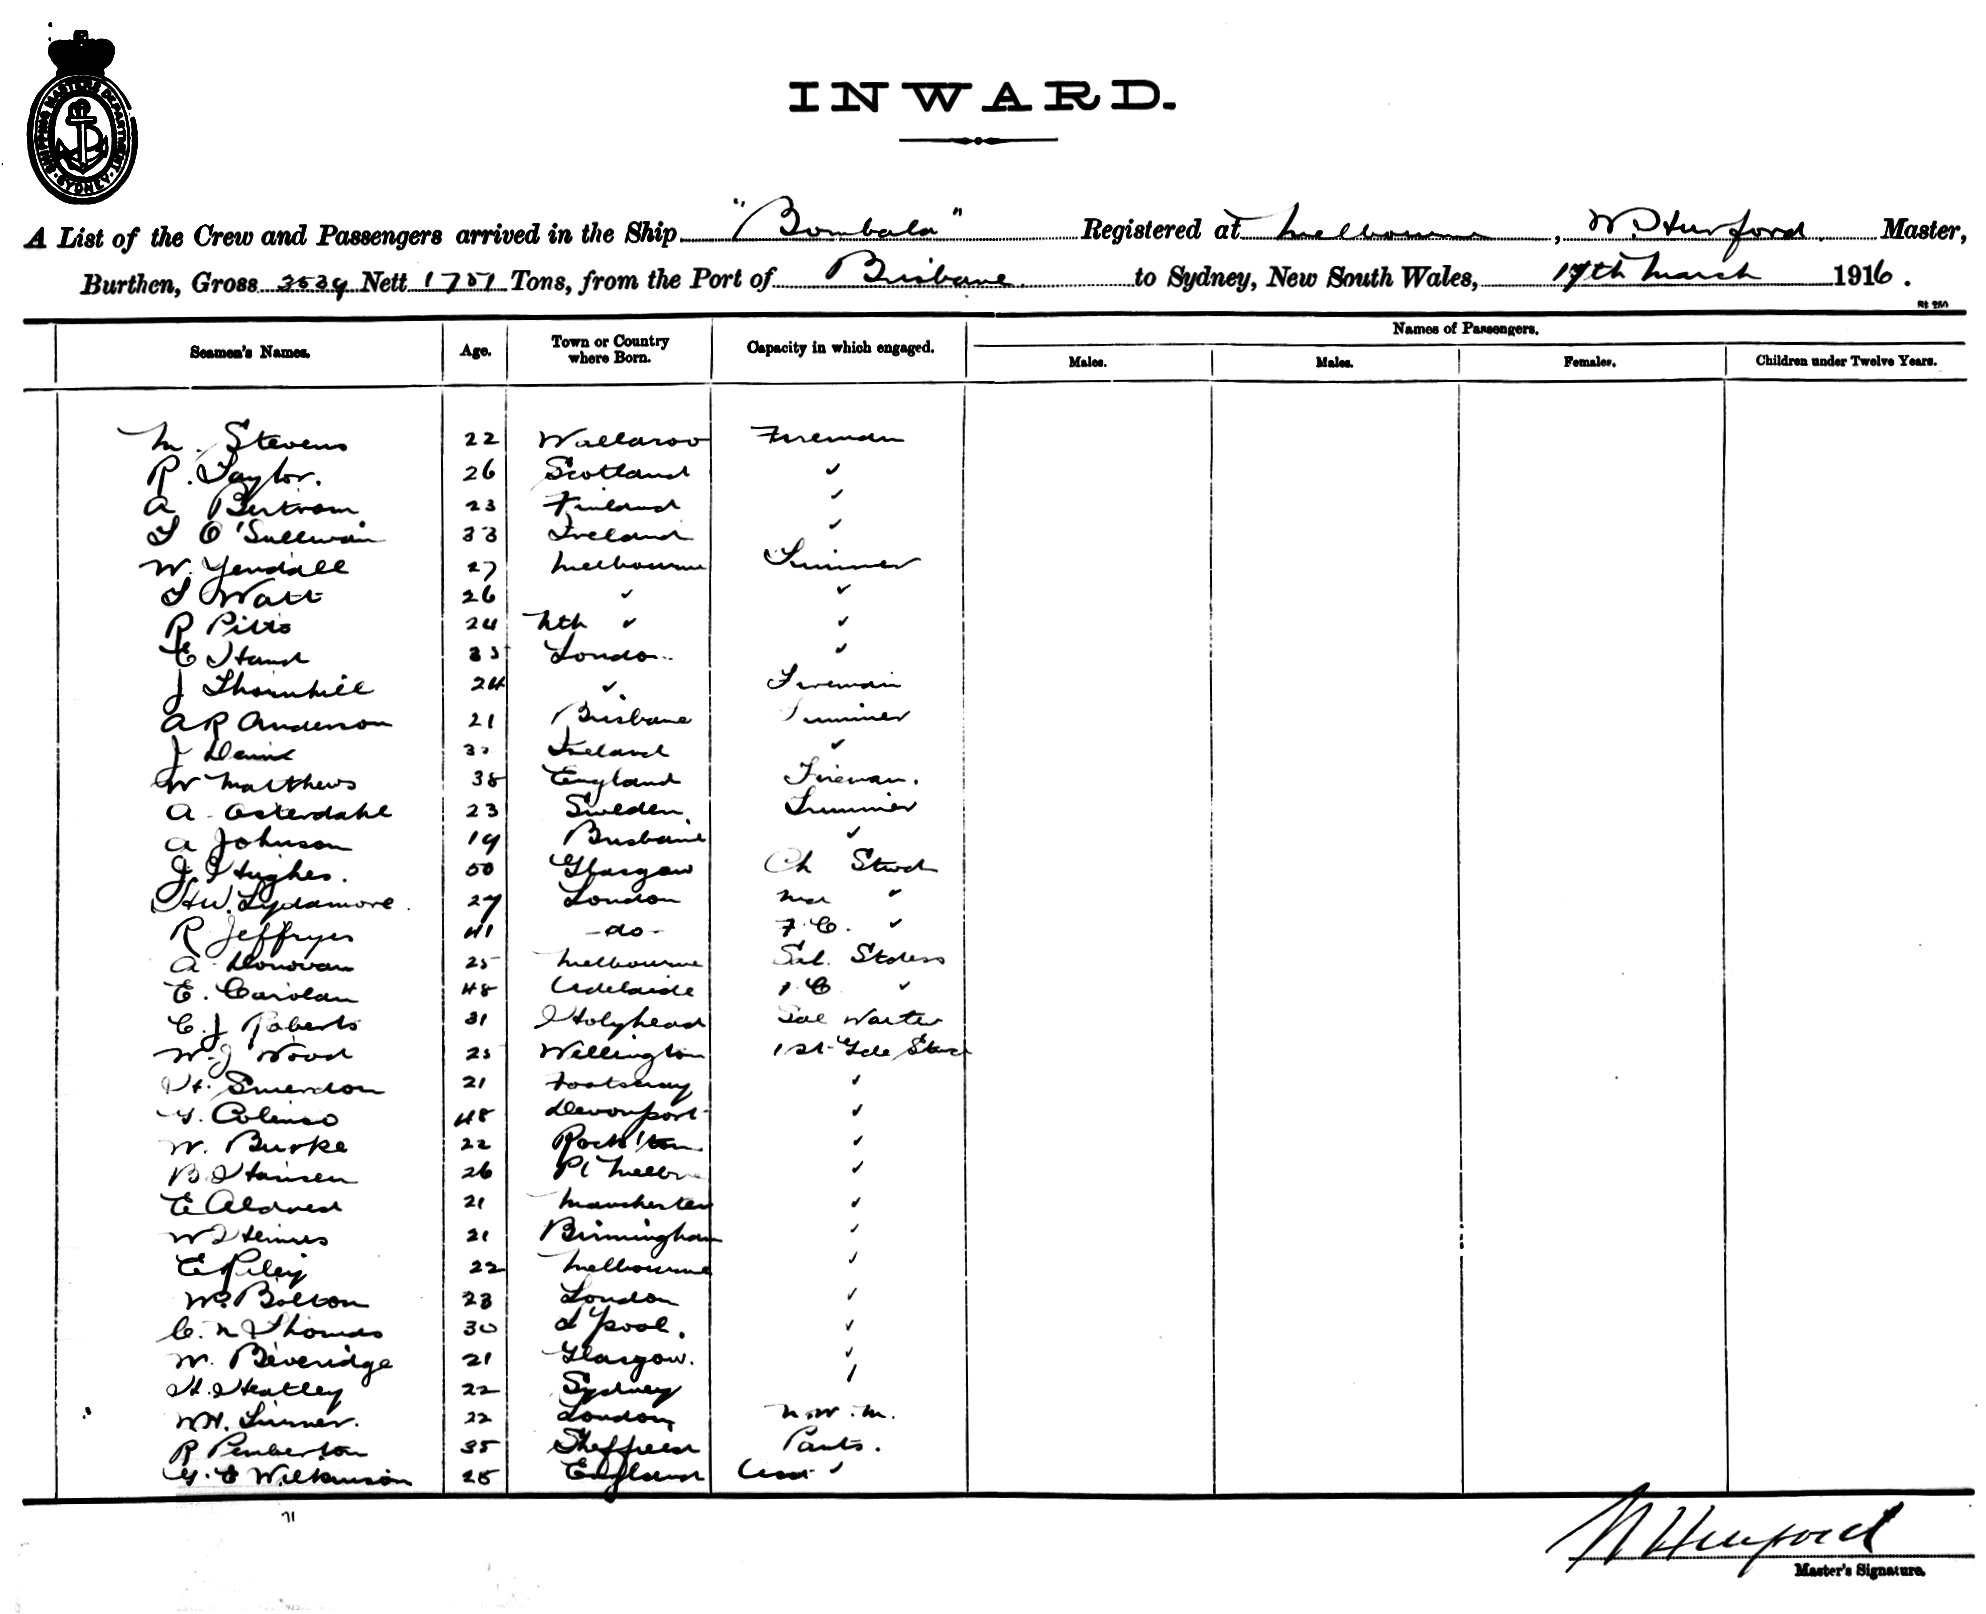 SHIPPING MASTERS DEPARTMENT. SYDNEY.
INWARD.
A List of the Crew and Passengers arrived in the Ship "Bombala" Registered at Melbourne, W. Hurford Master,
Burthen, Gross 3539 Nett 1751 Tons, from the Port of Brisbane to Sydney, New South Wales, 17th March 1916.
Seamen's Names. Age. Town or Country where Born. Capacity in which engaged. Names of Passengers.
Males. Males. Females. Children under Twelve Years.
M. Stevens 22 Wallaroo Fireman
R. Taylor. 26 Scotland ✓
A Bertram 23 Finland ✓
T O'Sullivan 33 Ireland ✓
W. Yendall 27 Melbourne Trimmer
T Watt 26 ✓ ✓
R Pitts 24 Nth ✓ ✓
E Hand 35 London ✓
J Thornhill 24 ✓ Fireman
A R Anderson 21 Brisbane Trimmer
J 3 Ireland ✓
W Matthews 38 England Fireman.
A. Osterdahl 23 Sweden. Trimmer
A Johnson 19 Brisbane ✓
J. Hughes. 50 Glasgow Ch Stwd
H.W. Lydamore. 27 London ✓
R Jeffryes 41 -do- F.C. ✓
A. Donovan 25 Melbourne Sal. Stdess
E. Carolan 48 Adelaide 1 C ✓
C. J Roberts 31 Holyhead Sal Waiter
W. J Wood 25 Wellington 1st Gde Stwd
H. Smerdon 21 Footscray ✓
G. Colenso 48 Devonport ✓
W. Burke 22 Rock'ton ✓
B Hansen 26 Pt Melbne ✓
E Aldred 21 Manchester ✓
W 21 Birmingham ✓
E Riley 22 Melbourne ✓
W. Bolton 23 London ✓
C. N Thomas 30 L'pool. ✓
W. Beveridge 21 Glasgow. ✓
H. Heatley 22 Sydney ✓
W.H. 22 London N.W.M.
R Pemberton 35 Sheffield Pants.
G. E Wilkinson 25 England Asst ✓
71
W Hurford
Master's Signature.